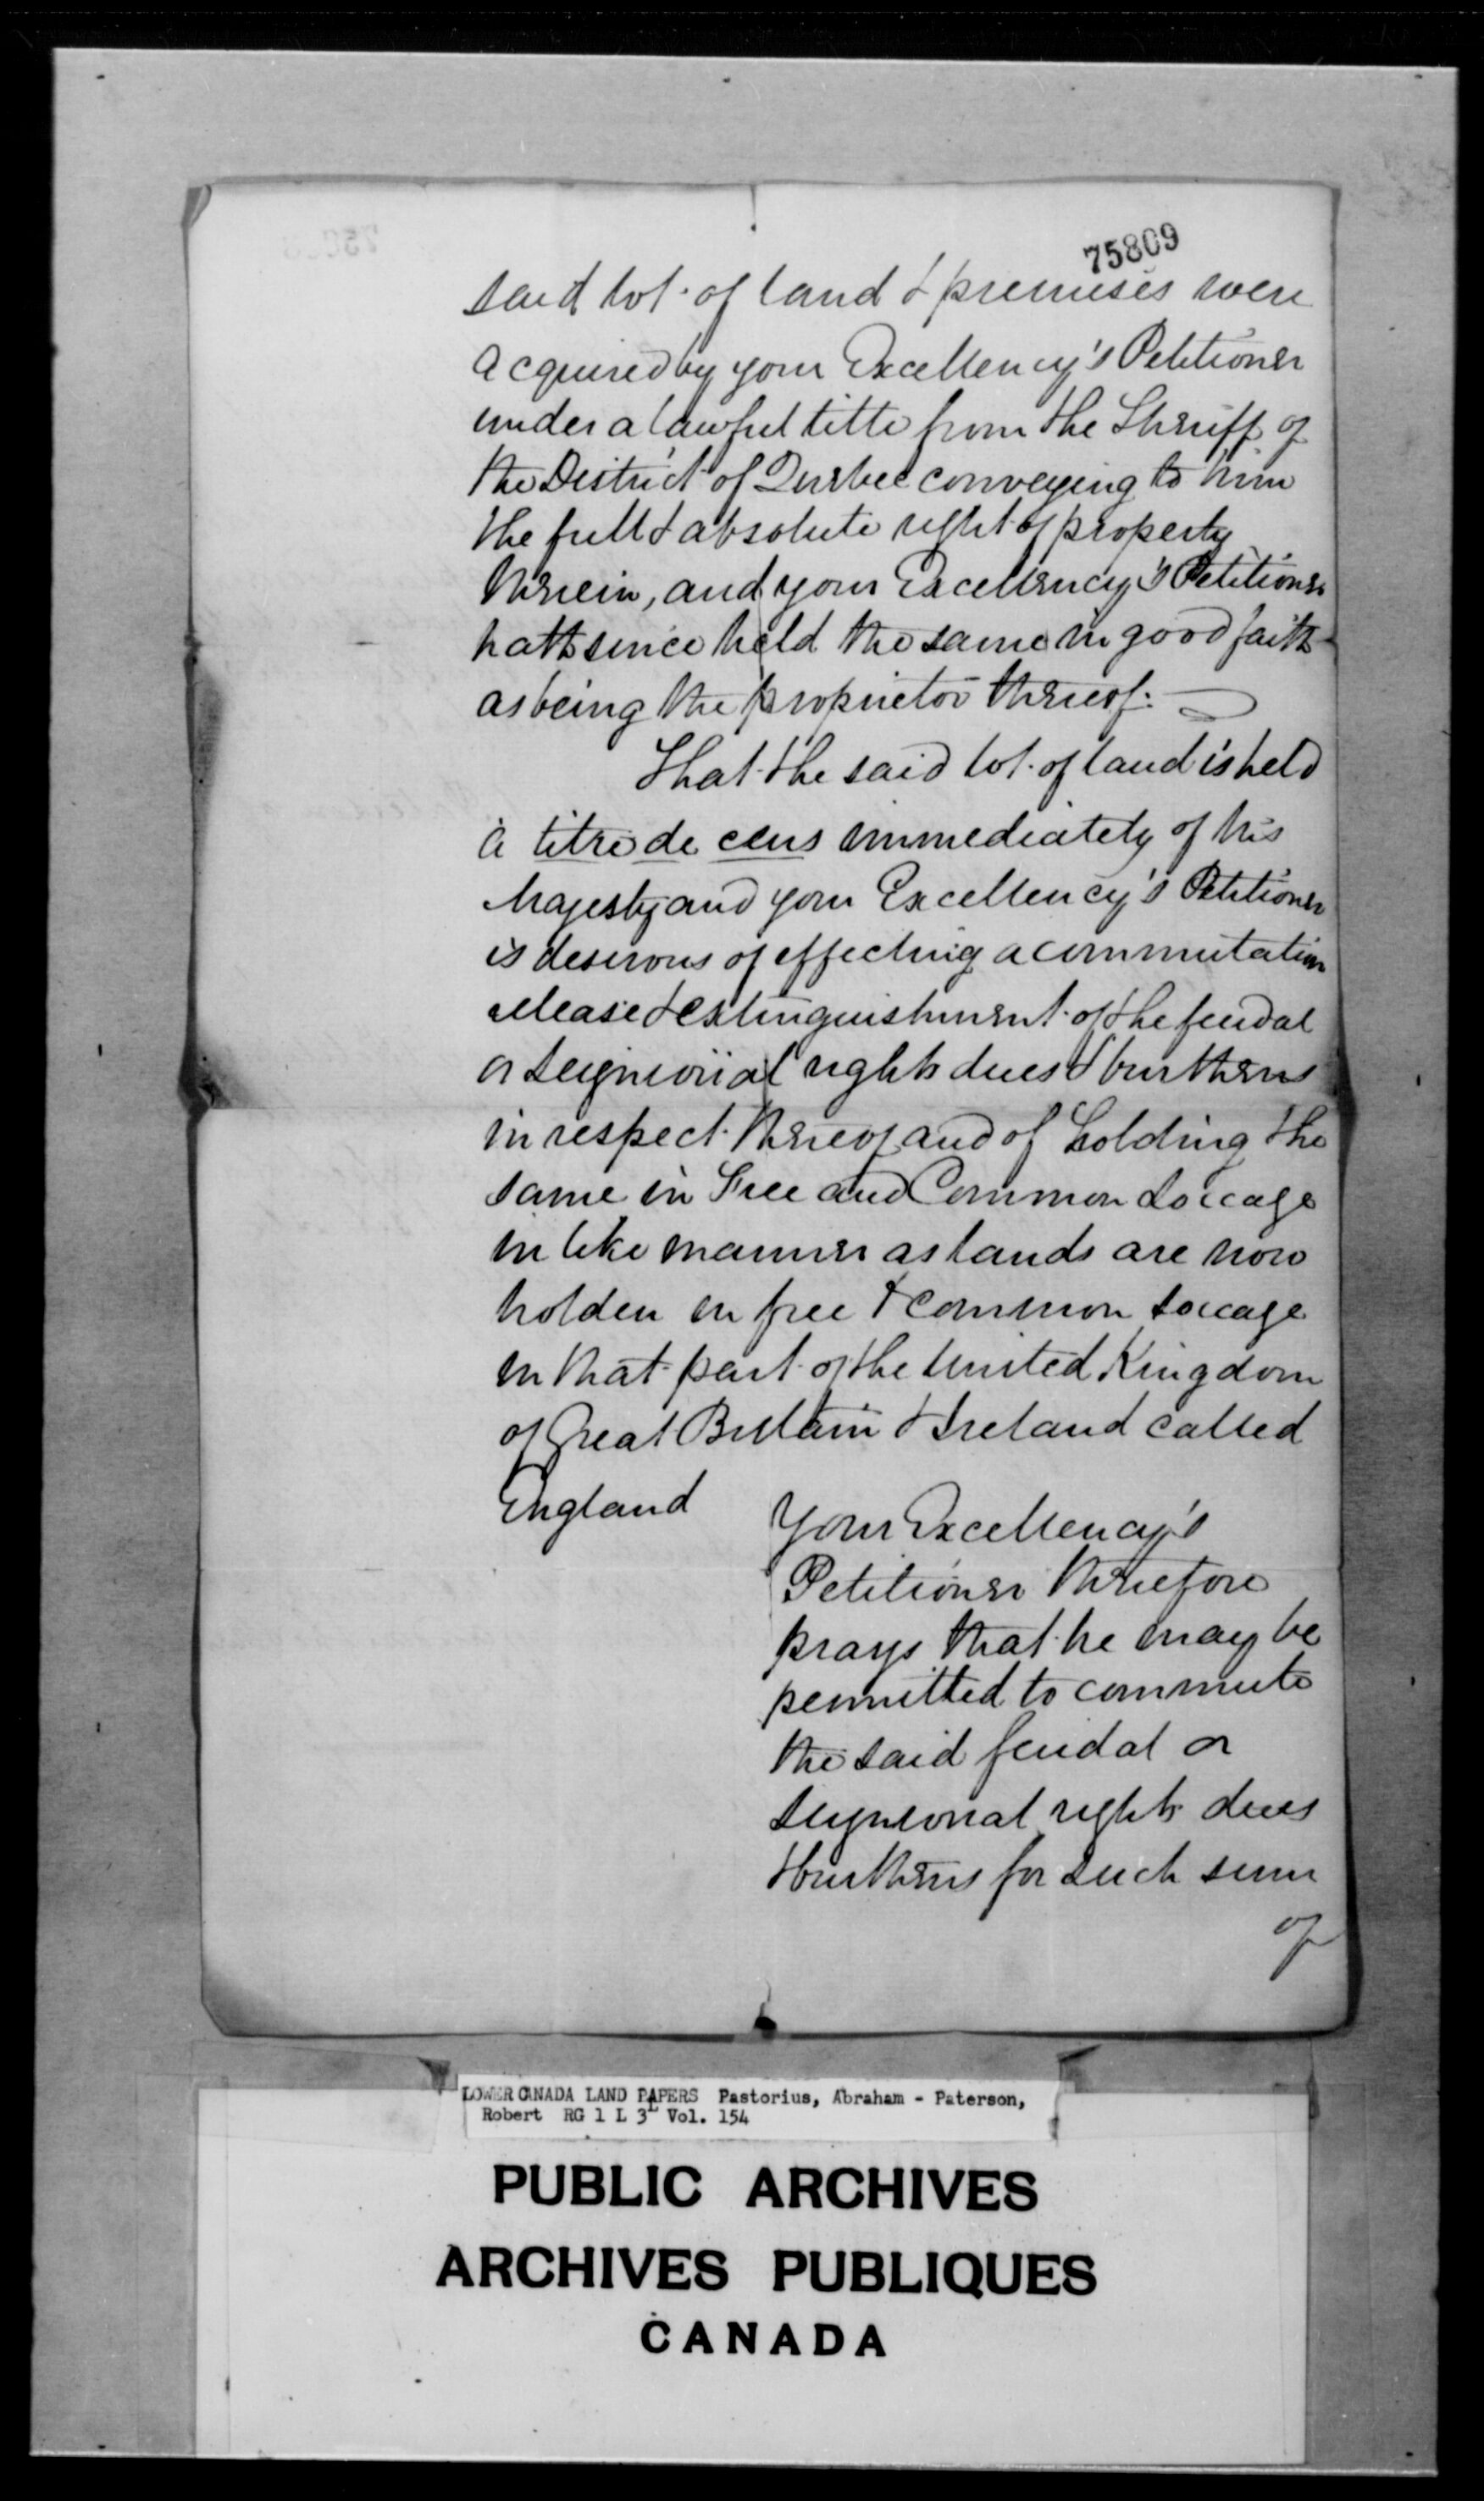 75809
said lot of land & premises were
acquired by your Excellency's Petitioner
under a lawful title from the Sheriff of
the District of Quebec conveying to him
the full & absolute right of property
therein, and your Excellency's Petitioner
hath since held the same in good faith
as being the proprietor thereof.
That the said lot of land is held
à titre de cens immediately of his
Majesty and your Excellency's Petitioner
is desirous of effecting a commutation
release & extinguishment of the feudal
or seigniorial rights dues & burthens
in respect thereof and of holding the
same in Free and Common Soccage
in like manner as lands are now
holden in free & common soccage
in that part of the United Kingdom
of Great Britain & Ireland called
England
Your Excellency's
Petitioner therefore
prays that he may be
permitted to commute
the said feudal or
seignorial rights dues
& burthens for such sum
of
LOWER CANADA LAND PAPERS Pastorius, Abraham - Paterson,
Robert RG 1 L 3L Vol. 154
PUBLIC ARCHIVES
ARCHIVES PUBLIQUES
CANADA